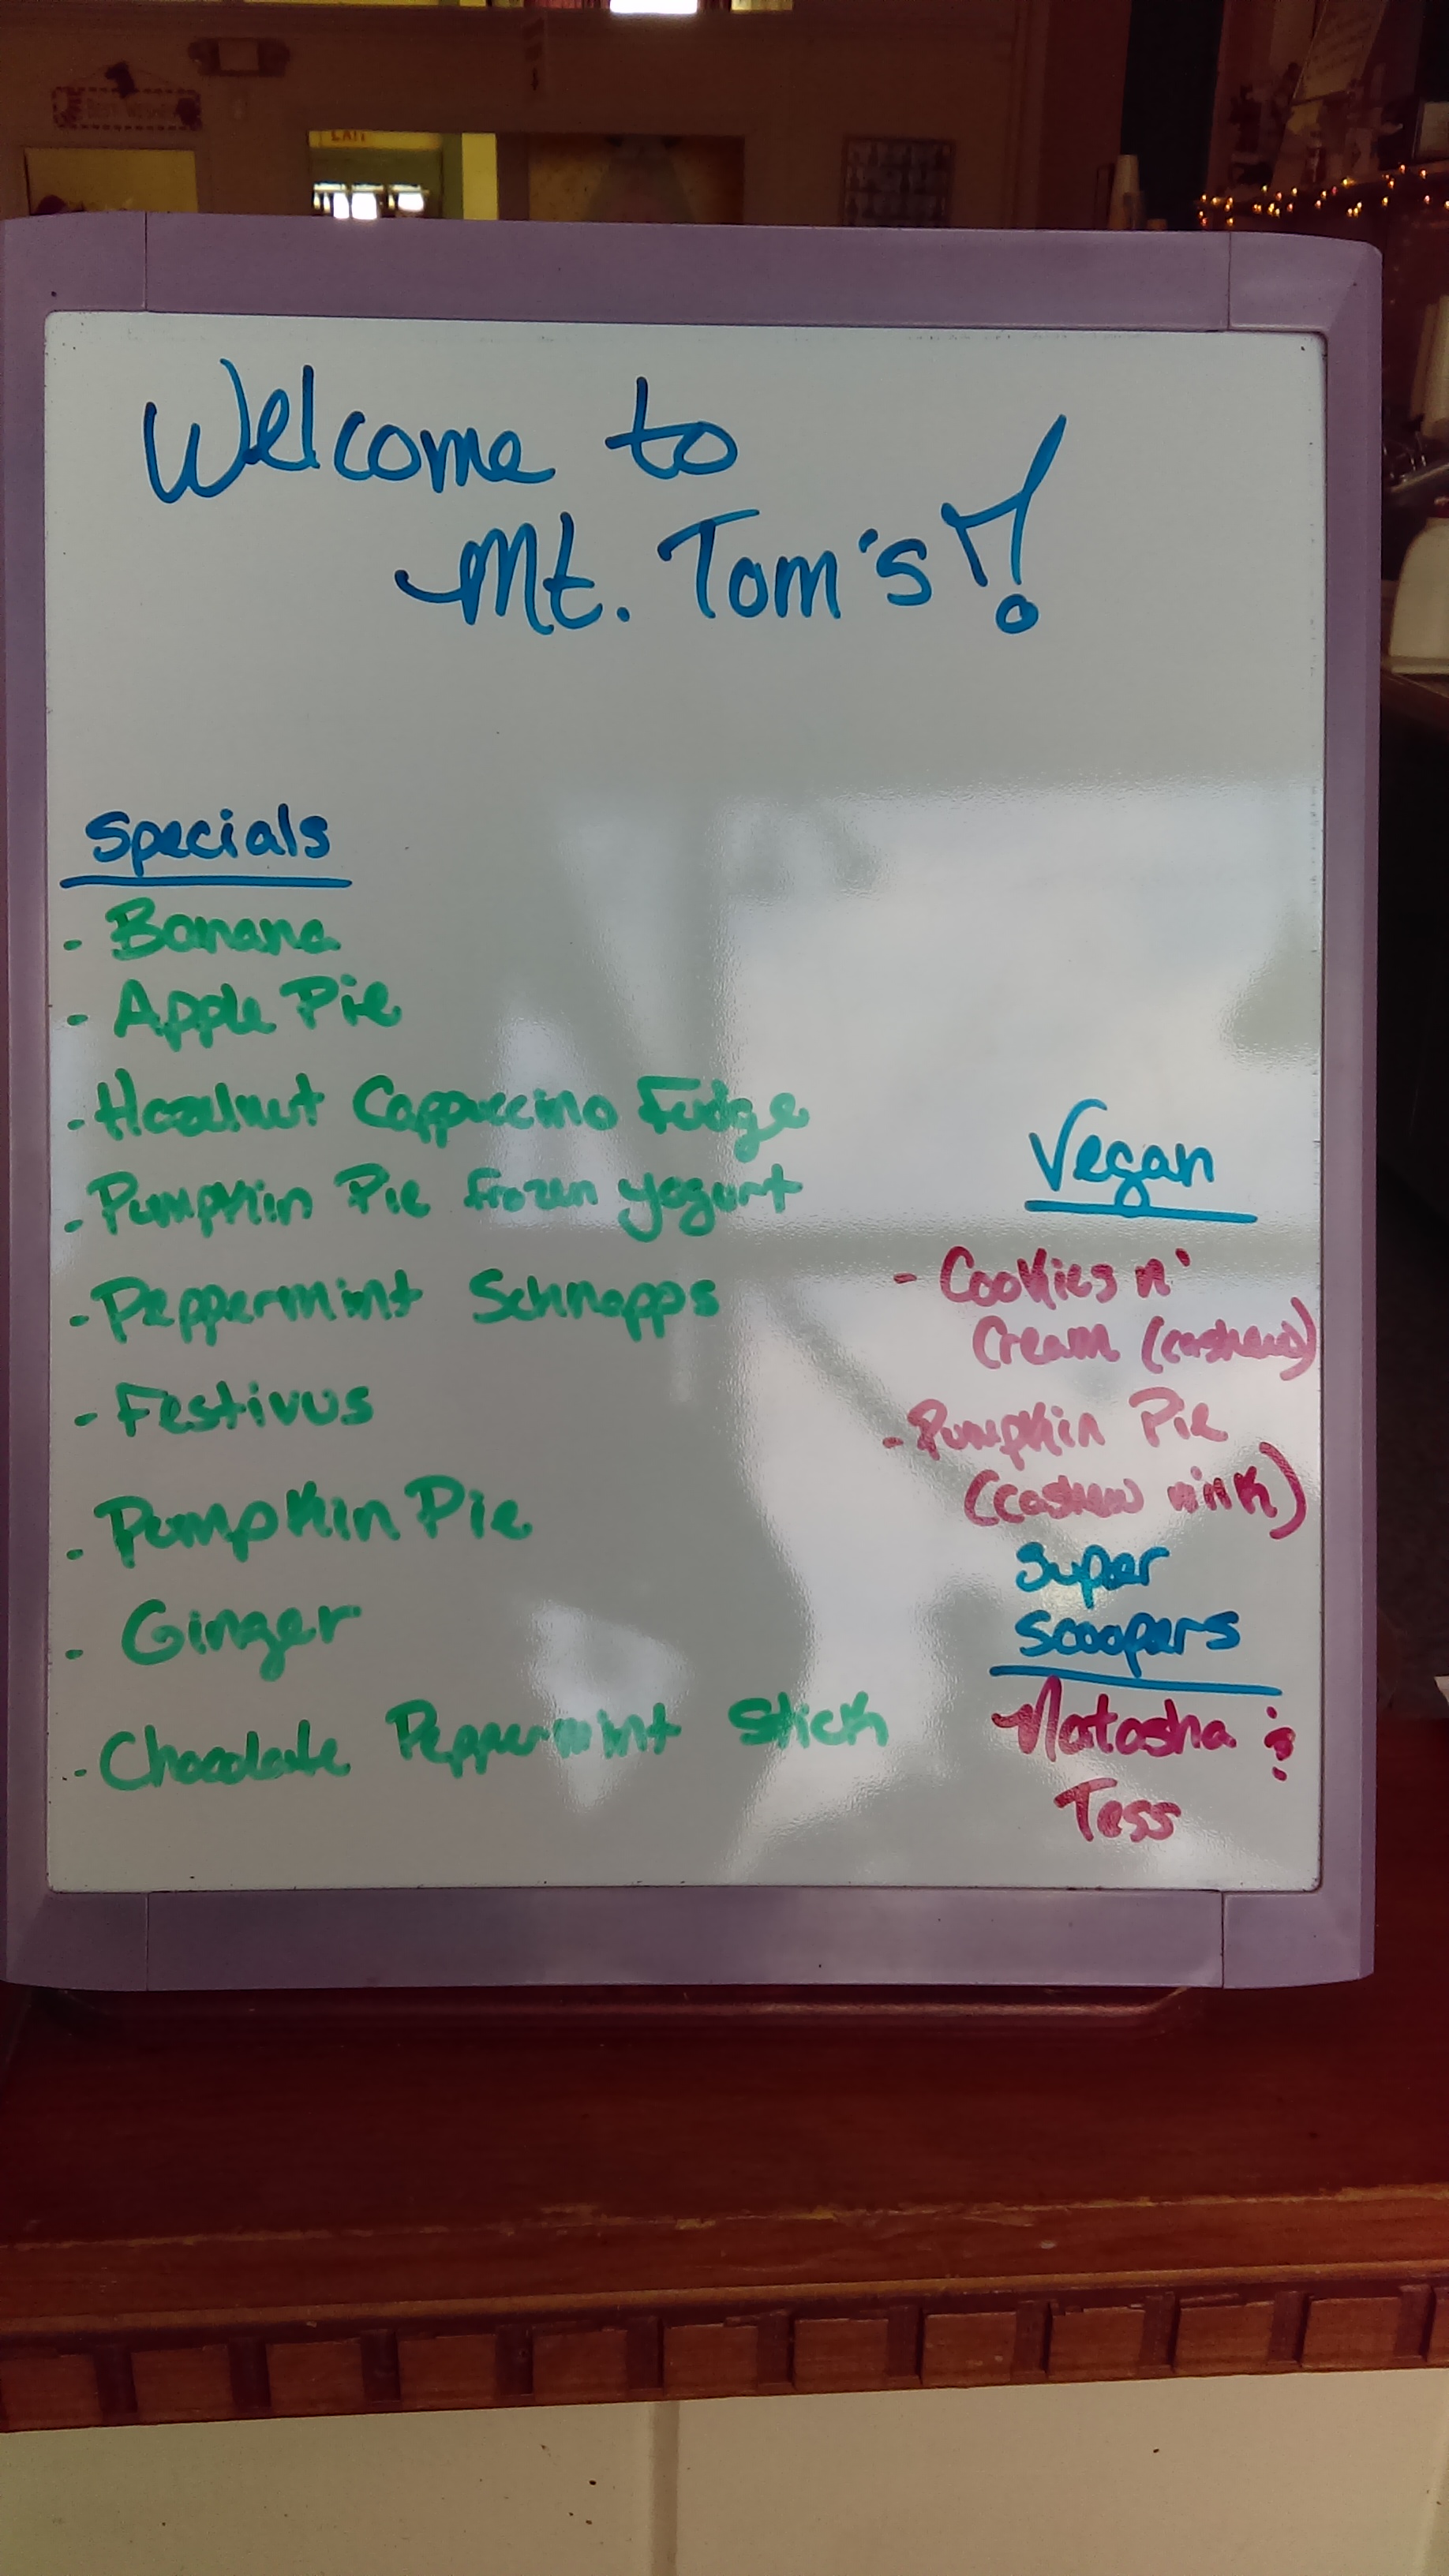 EXIT
Welcome to
Mt. Tom's!
Specials
- Banana
- Apple Pie
- Hazelnut Cappuccino Fudge
- Pumpkin Pie frozen yogurt
- Peppermint Schnapps
- Festivus
- Pumpkin Pie
- Ginger
- Chocolate Peppermint Stick
Vegan
- Cookies n'
Cream (cashew)
- Pumpkin Pie
(cashew milk)
Super
Scoopers
Natasha &
Tess